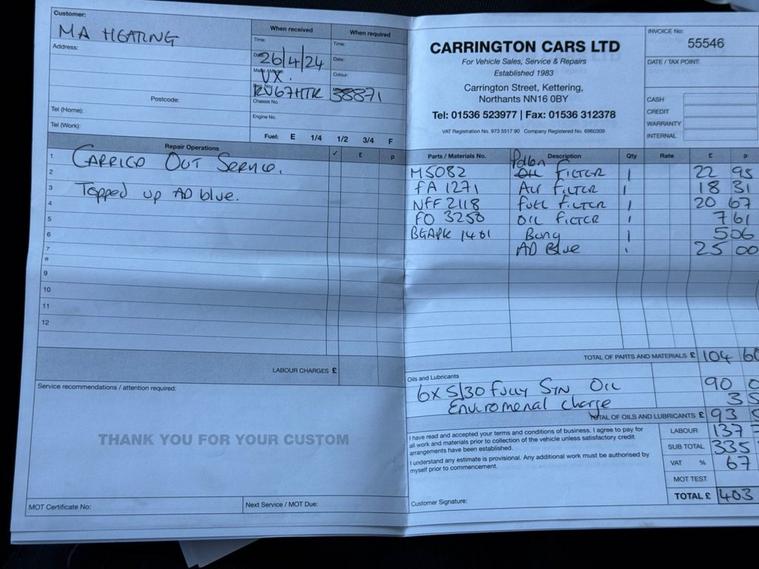 Customer:
MA HEATING
Address:
Postcode:
Tel (Home):
Tel (Work):
When received
When required
Time:
Time:
26/4/24
Date:
VX.
Colour:
RV67HTK
38871
Chassis No.
Engine No.
Fuel: E 1/4 1/2 3/4 F
CARRINGTON CARS LTD
For Vehicle Sales, Service & Repairs
Established 1983
Carrington Street, Kettering,
Northants NN16 0BY
Tel: 01536 523977 | Fax: 01536 312378
VAT Registration No. 973 5517 90 Company Registered No. 6960309
INVOICE No:
55546
DATE / TAX POINT:
CASH
CREDIT
WARRANTY
INTERNAL
Repair Operations ✓ £ p
1 CARRIED OUT SERVICE.
2
3 Topped up AD blue.
4
5
6
7
8
9
10
11
12
LABOUR CHARGES £
Parts / Materials No. Description Qty Rate £ p
M5082 Pollen FILTER 1 22 95
FA 1271 AIR FILTER 1 18 31
NFF 2118 FUEL FILTER 1 20 67
FO 3250 OIL FILTER 1 7 61
BGAPK 1401 Bung 1 506
AD Blue 1 25 00
TOTAL OF PARTS AND MATERIALS £ 104 60
Oils and Lubricants
6X 5/30 Fully SYN OIL 90 0
Enviromenal charge 3 5
TOTAL OF OILS AND LUBRICANTS £ 93 5
I have read and accepted your terms and conditions of business. I agree to pay for
all work and materials prior to collection of the vehicle unless satisfactory credit
arrangements have been established.
I understand any estimate is provisional. Any additional work must be authorised by
myself prior to commencement.
Customer Signature:
LABOUR 137
SUB TOTAL 335
VAT % 67
MOT TEST
TOTAL £ 403
Service recommendations / attention required:
THANK YOU FOR YOUR CUSTOM
MOT Certificate No:
Next Service / MOT Due: